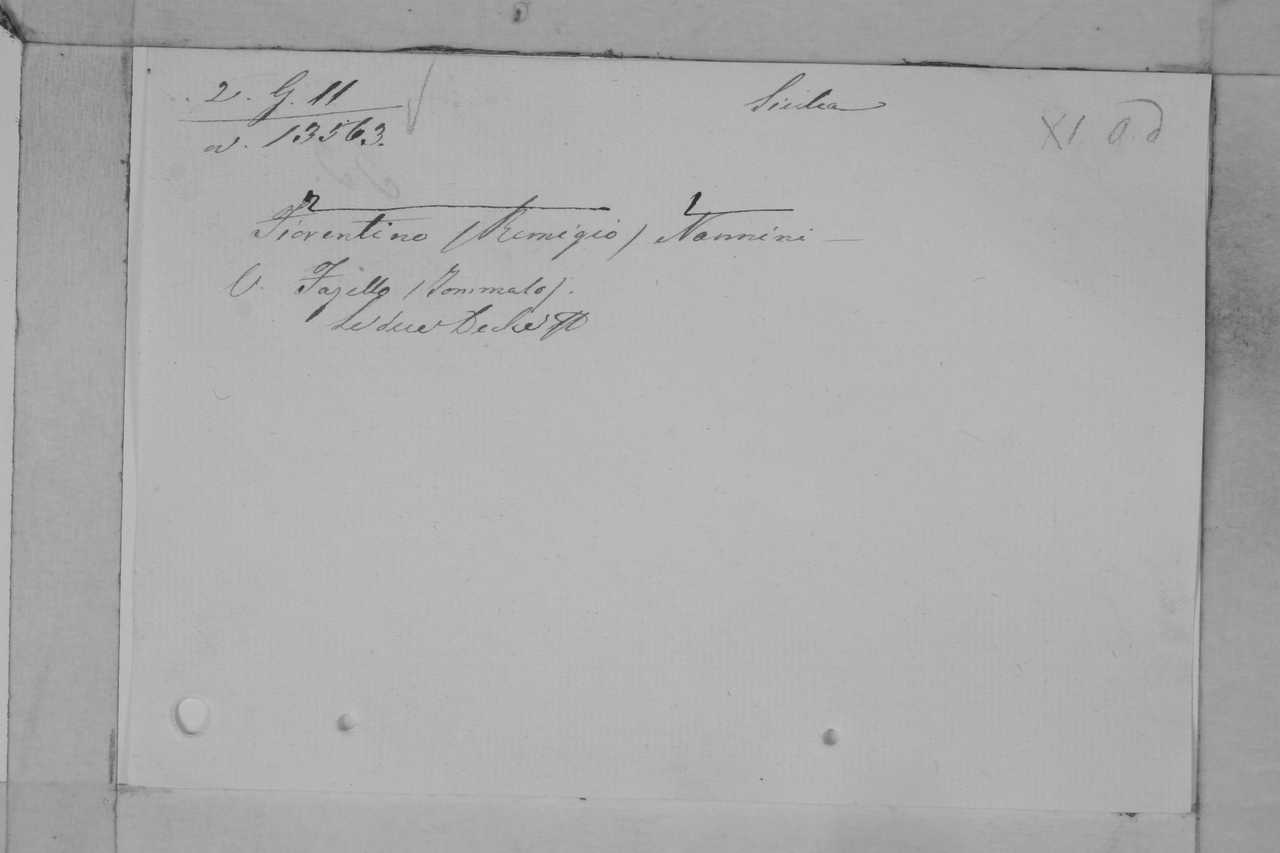 2. G. 11
a. 13563.
Sicilia
XI. a. d
2 1
Fiorentino (Remigio) Nannini —
V. Fazello (Tommaso).
Le due Deche